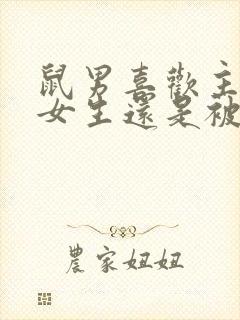 鼠男喜歡主
女生還是被
農家妞妞